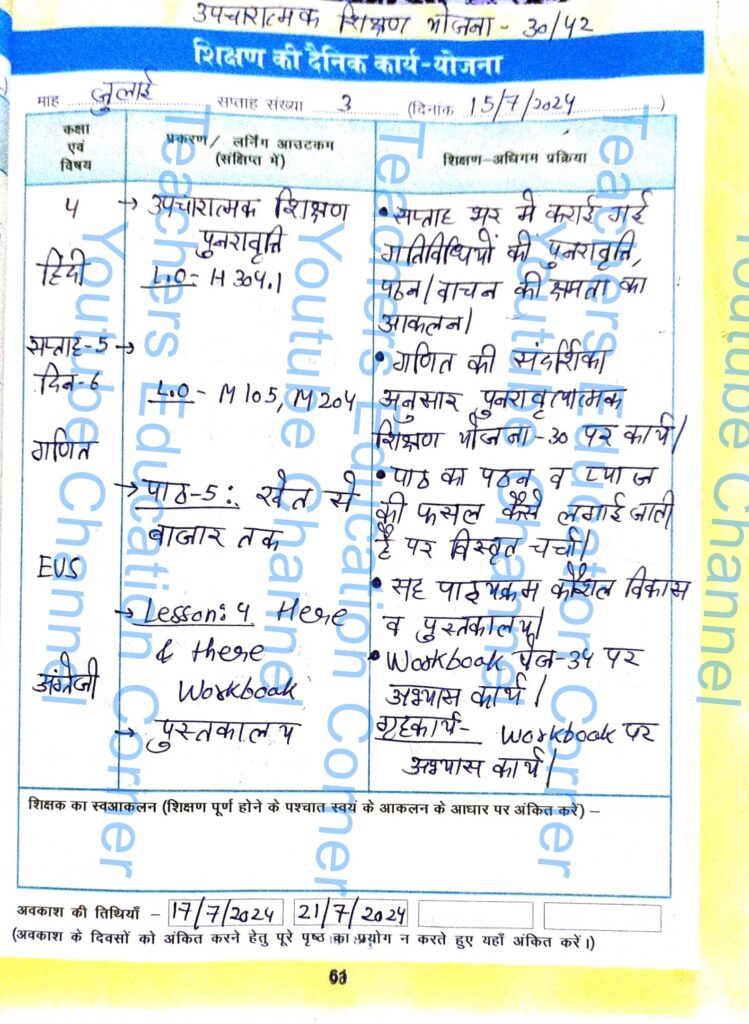 उपचारात्मक शिक्षण योजना - 30/42
शिक्षण की दैनिक कार्य-योजना
माह जुलाई सप्ताह संख्या 3 (दिनांक 15/7/2024)
कक्षा एवं विषय
प्रकरण/ लर्निंग आउटकम
(संक्षिप्त में)
शिक्षण-अधिगम प्रक्रिया
4
हिंदी
सप्ताह-5 →
दिन-6
गणित
EVS
अंग्रेजी
→ उपचारात्मक शिक्षण
पुनरावृत्ति
L.O- H 304.1
L.O - M105, M204
→ पाठ-5: खेत से
बाजार तक
→ Lesson: 4 Here
& there
Workbook
→ पुस्तकालय
• सप्ताह भर में कराई गई
गतिविधियों की पुनरावृत्ति,
पठन/वाचन की क्षमता का
आकलन।
• गणित की संदर्शिका
अनुसार पुनरावृत्यात्मक
शिक्षण योजना-30 पर कार्य।
• पाठ का पठन व प्याज
की फसल कैसे लगाई जाती
है पर विस्तृत चर्चा।
• सह पाठ्यक्रम कौशल विकास
व पुस्तकालय।
• Workbook पेज-34 पर
अभ्यास कार्य।
गृहकार्य- Workbook पर
अभ्यास कार्य।
शिक्षक का स्वआकलन (शिक्षण पूर्ण होने के पश्चात स्वयं के आकलन के आधार पर अंकित करें) –
अवकाश की तिथियाँ – 17/7/2024 21/7/2024
(अवकाश के दिवसों को अंकित करने हेतु पूरे पृष्ठ का प्रयोग न करते हुए यहाँ अंकित करें।)
Teachers Education Corner
Youtube Channel
Teachers Education Corner
Youtube Channel
Teachers Education Corner
Youtube Channel